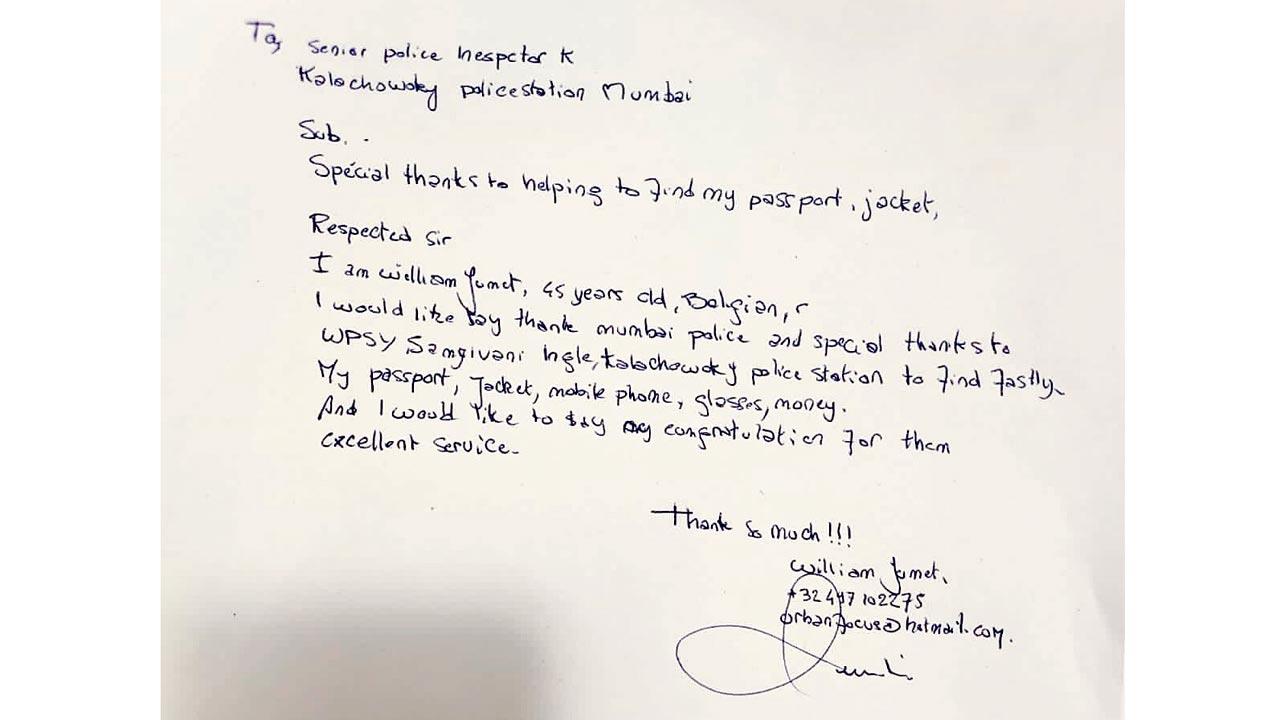 To,
Senior police Inespctor K
Kalachowky policestation Mumbai
Sub. -
Spécial thanks to helping to Find my passport, jacket,
Respected Sir
I am william Jumet, 45 years old, Belgian,
I would like say thank mumbai police and special thanks to
WPSY Sangivani Ingle, Kalachowky police station to Find Fastly
My passport, Jacket, mobile phone, glasses, money.
And I would like to say my congratulation for them
excellent service.
Thank so much !!!
William Jumet,
+32 497 102275
orbanfocus@hotmail.com.